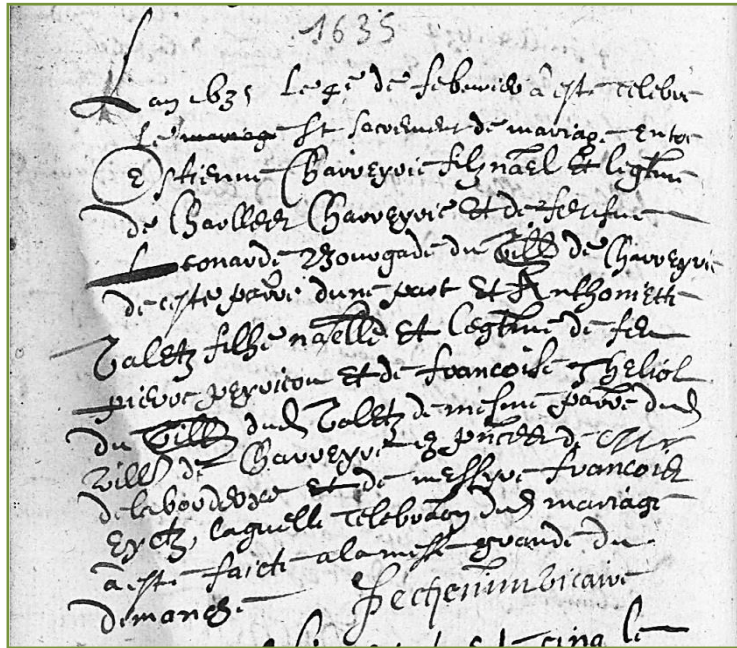 1635
Lan 1635 le 4e de febvrier a este celebré
le mariage St sacrement de mariage entre
Estienne Charreyrie filz nãel et legtme
de Charlles Charreyrie et de feue
Leonarde Bourgade du Villˢ de Charreyrie
de ceste parre dune part et Anthoniette
Valetz filhe naelle et legtme de feu
pierre peyricou et de francoise Theliol
du Villˢ dud Valetz de mesme parre dud
Villˢ de Charreyrie es pñces de
delaborderye et de messyre francois
Eyctz, laquelle celebraon dud mariage
a este faicte a la messe grande du
dimanche
vicaire
cinq le